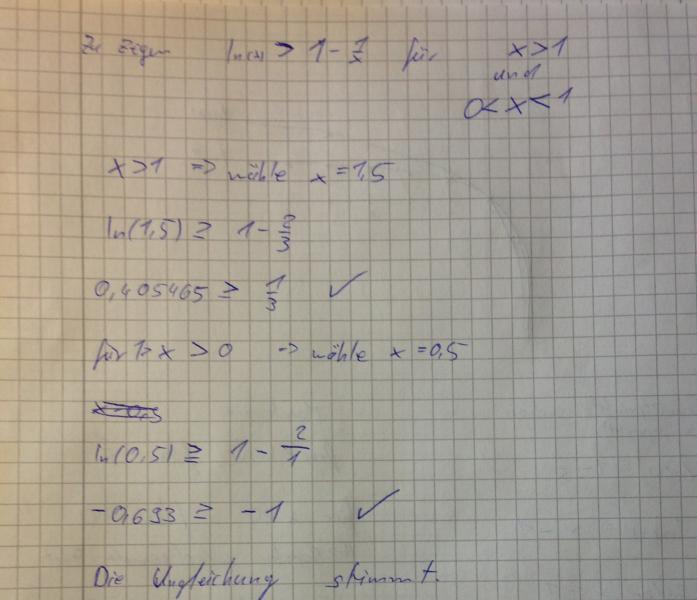 Zu Zeigen ln(x) > 1 - 1/x für x > 1
und
0 < x < 1
x > 1 => wähle x = 1,5
ln(1,5) ≥ 1 - 2/3
0,405465 ≥ 1/3 ✓
für 1 > x > 0 -> wähle x = 0,5
ln(0,5) ≥ 1 - 2/1
-0,693 ≥ -1 ✓
Die Ungleichung stimmt.